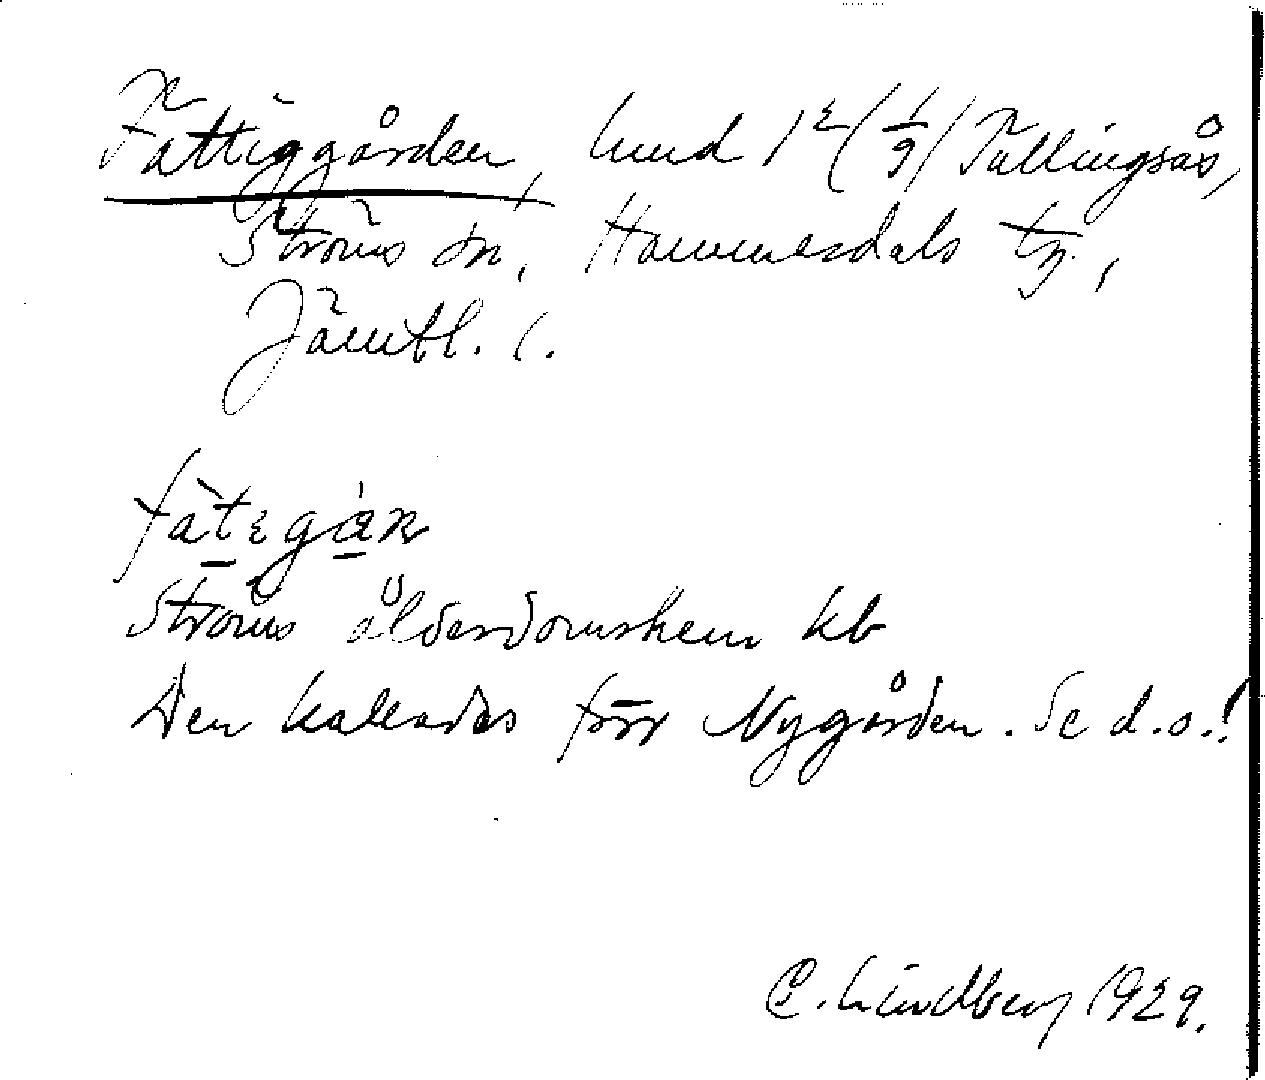 Fattiggården, lund 1² (1/9) Tullingsås,
Ströms sn, Hammerdals tg.,
Jämtl. l.
fàtegàṇ
Ströms ålderdomshem kb
Den kallades förr Nygården. Se d.o.!
C. Lindberg 1929.